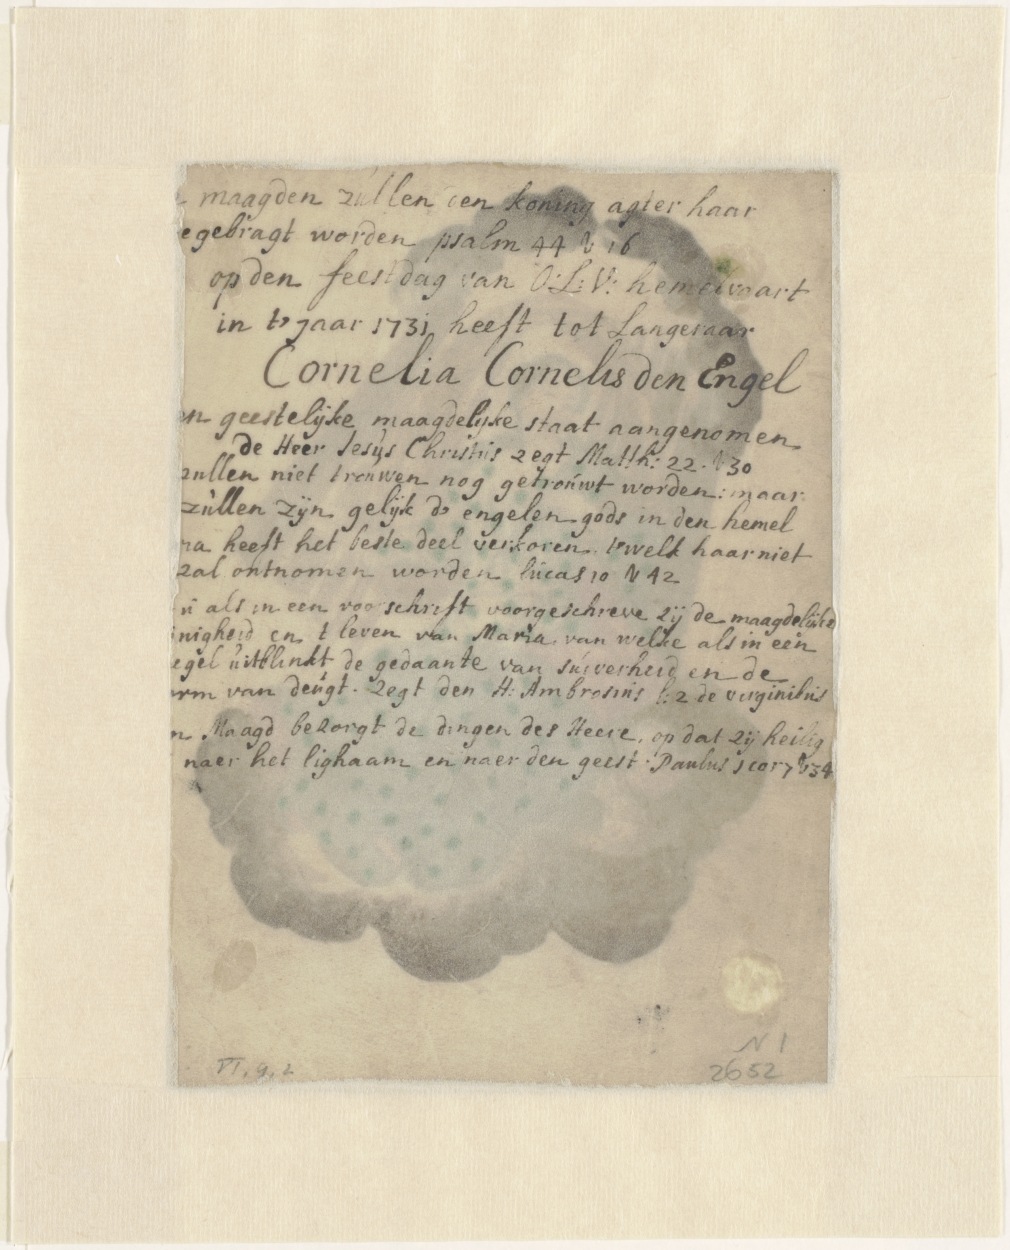 maagden zullen den koning agter haar
gebragt worden psalm 44 v 16
op den feestdag van O:L:V: hemelvaart
in t' jaar 1731 heeft tot Langeraar
Cornelia Cornelis den Engel
en geestelijke maagdelijke staat aangenomen
de Heer Jesus Christus zegt Matth: 22. v 30
zullen niet trouwen nog getrouwt worden: maar
zullen zijn gelijk de engelen gods in den hemel
ria heeft het beste deel verkoren. 't welk haar niet
zal ontnomen worden lucas 10 v 42
u als in een voorschrift voorgeschreve zij de maagdelijke
inigheid en t leven van Maria van welke als in een
egel uitblinkt de gedaante van suiverheid en de
orm van deugt. zegt den H: Ambrosius l:2 de virginibus
n Maagd bezorgt de dingen des Heere, op dat zij heilig
naer het lighaam en naer den geest. Paulus 1 cor 7 v 34
VI, 9, 2
N 1
2652